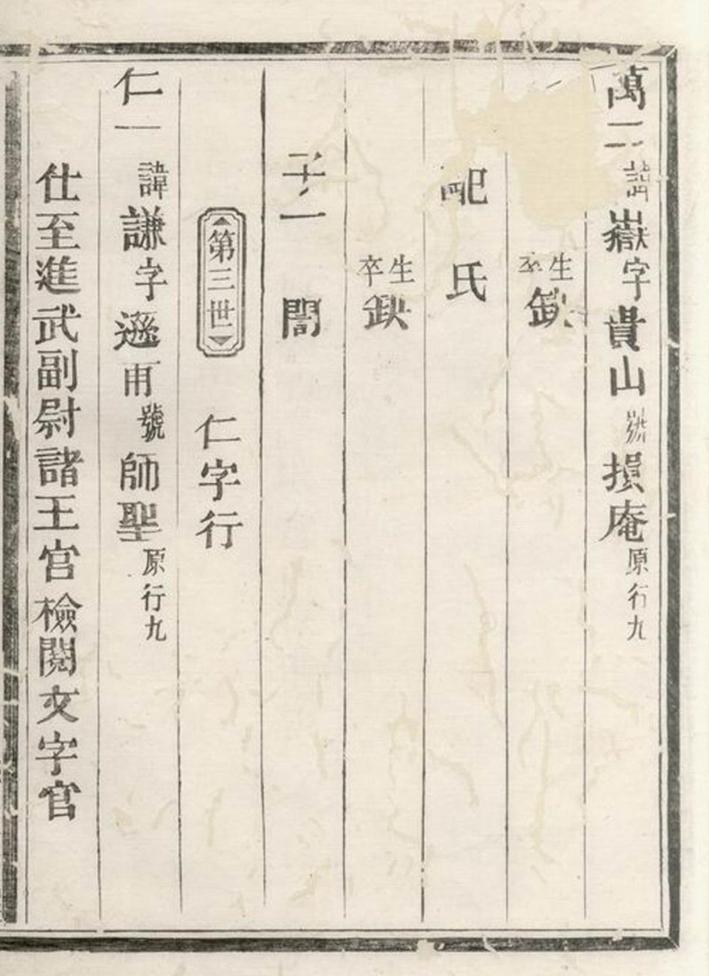 萬二 諱嶽字貴山號損庵原行九
生卒缺
配 氏
生卒缺
子一 誾
第三世 仁字行
仁一 諱謙字遜甫號師聖原行九
仕至進武副尉諸王官檢閱文字官